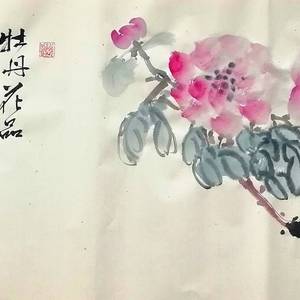 牡丹花品